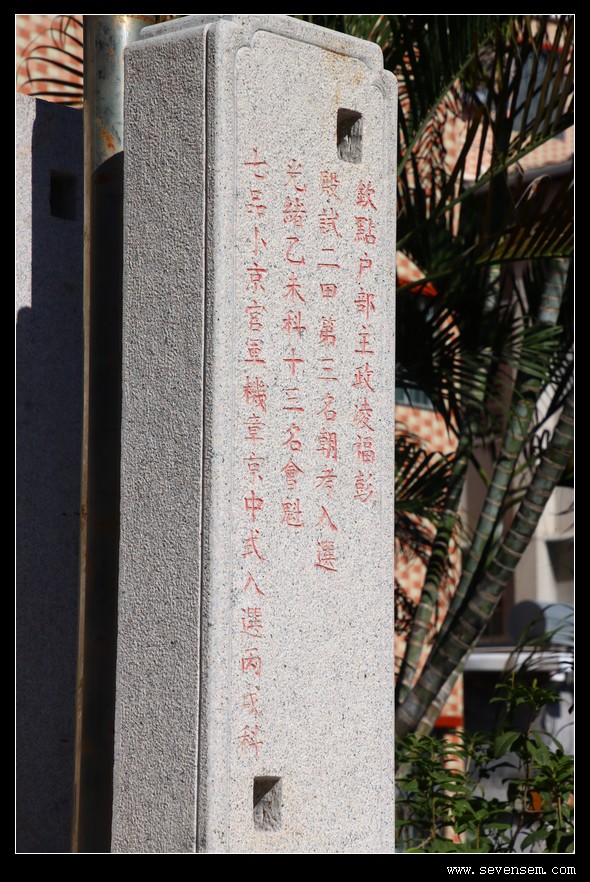 欽點户部主政凌福彭
殿試二田第三名朝考入選
光緒乙未科十三名會魁
七品小京官軍機章京中式入選丙戌科
www.sevensem.com